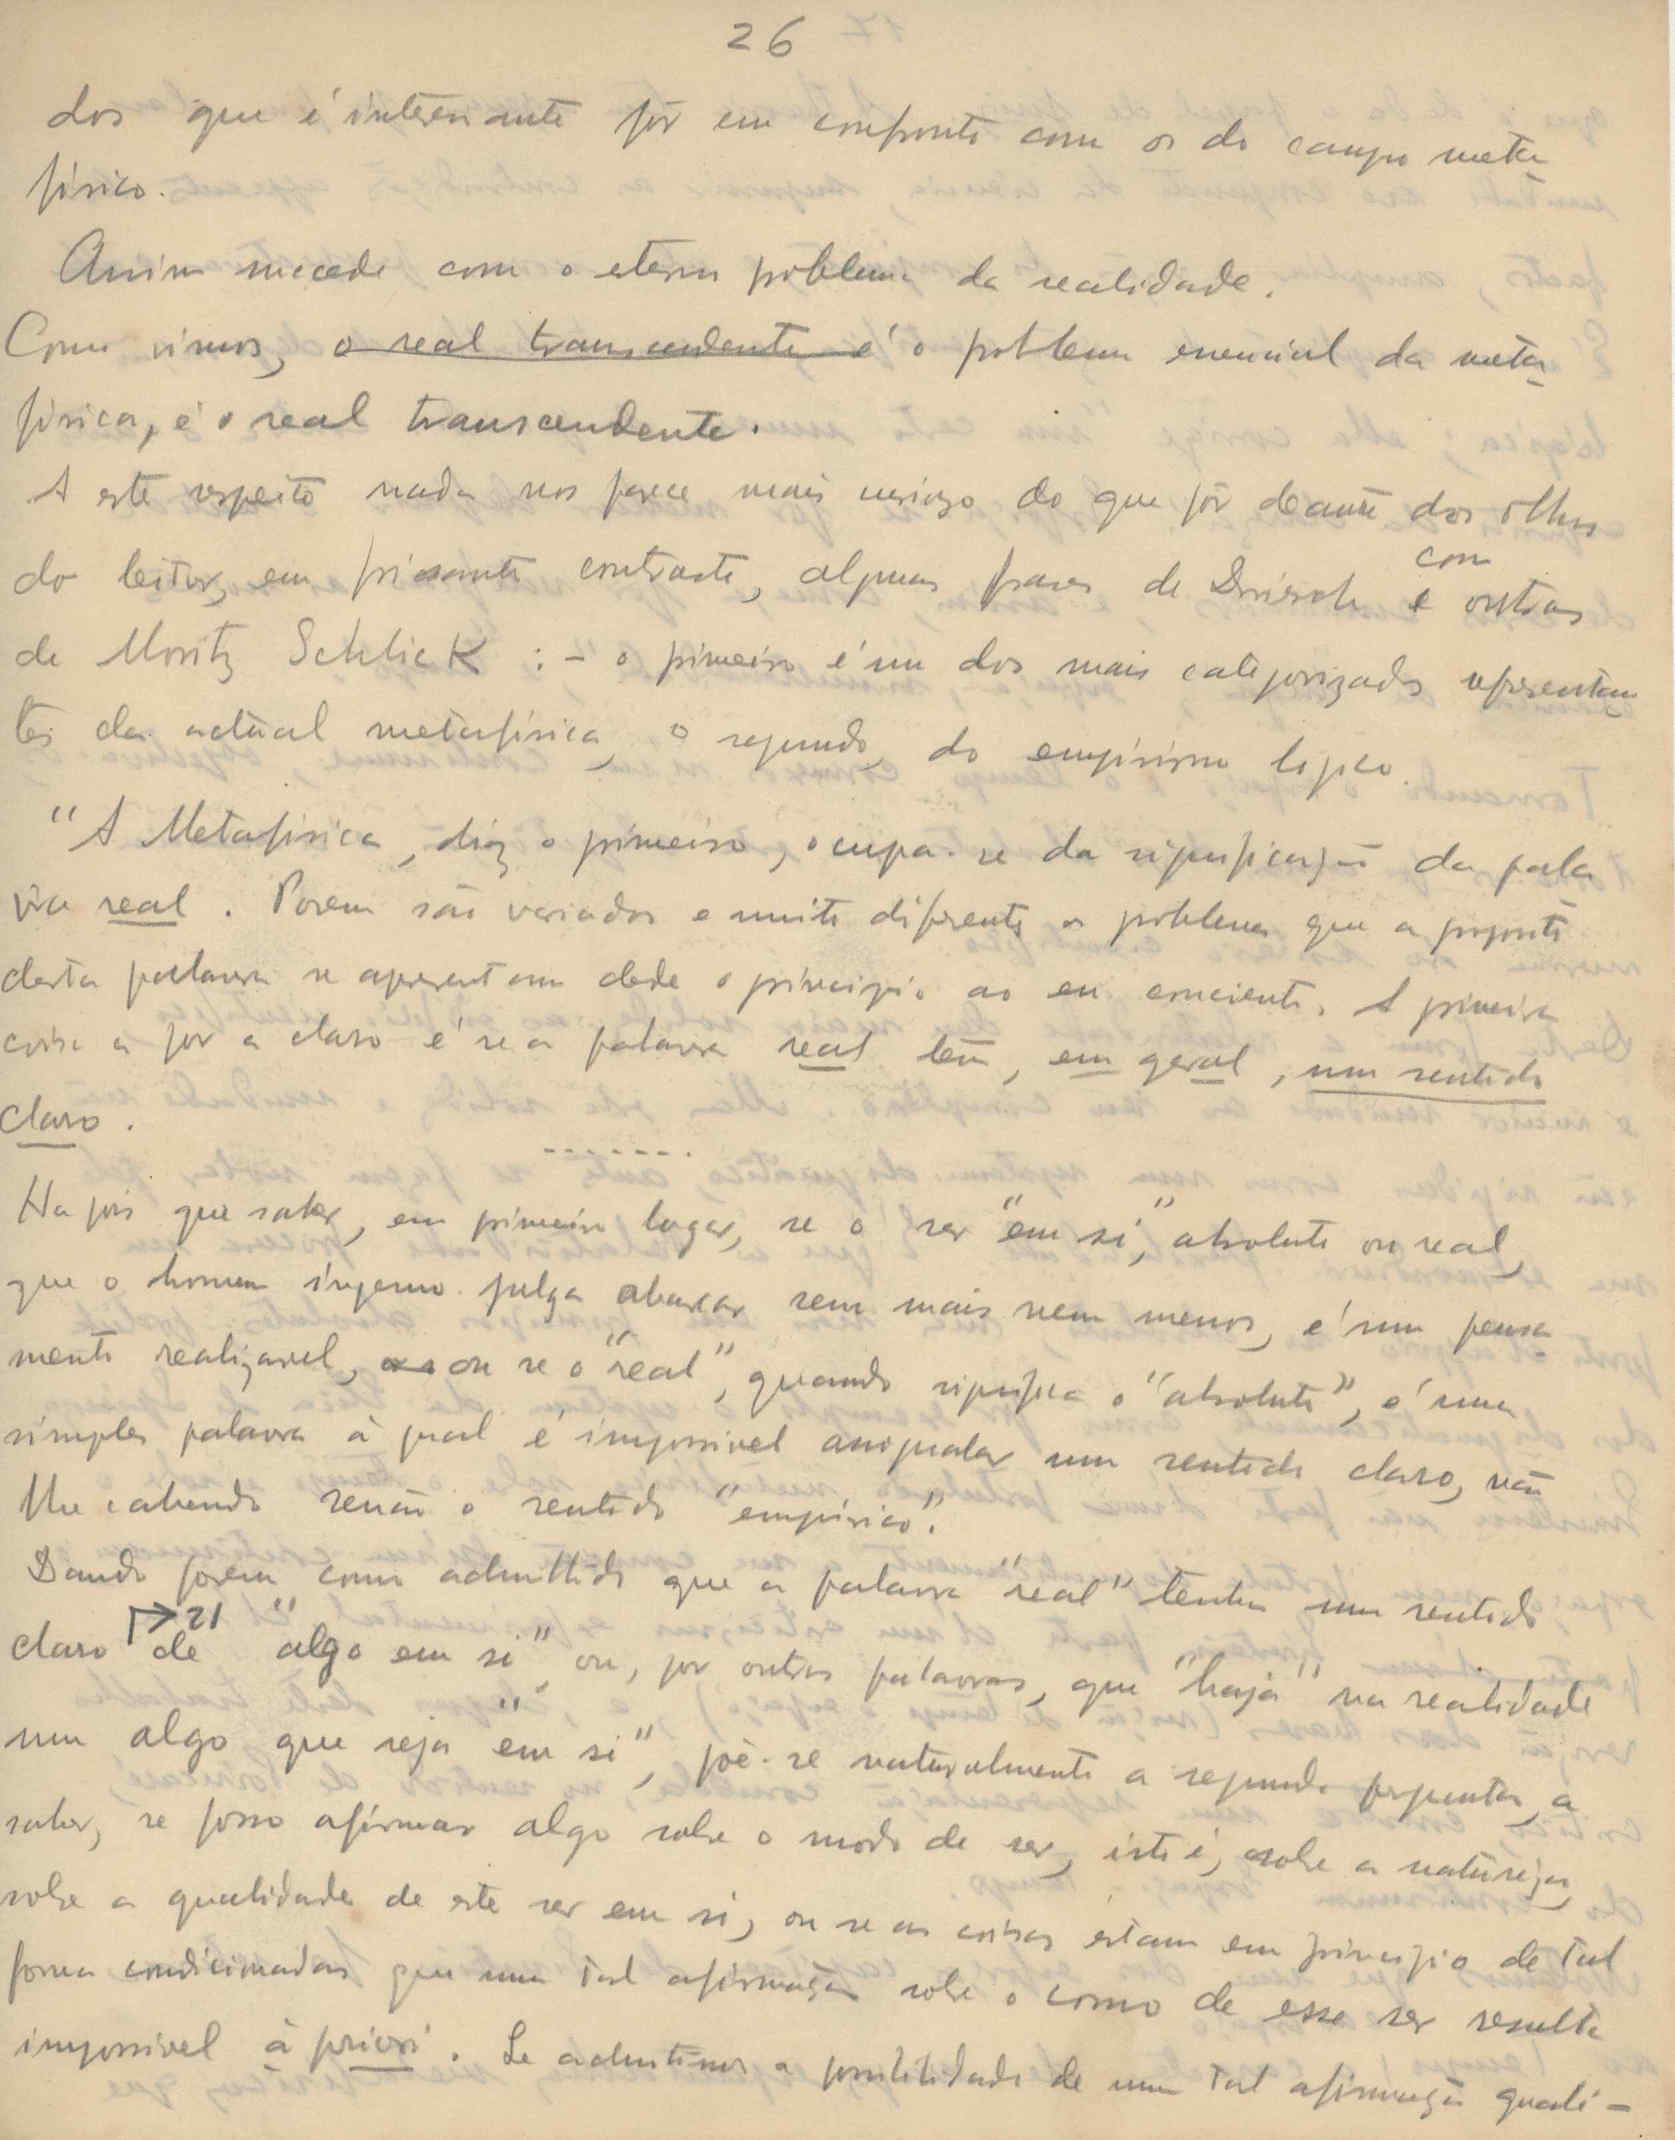 26
dos que é interessante pôr em confronto com os do campo meta-
físico.
Assim sucede com o eterno problema da realidade.
Como vimos, o real transcendente é o problema essencial da meta-
física, é o real transcendente.
A este respeito nada nos parece mais curioso do que pôr deante dos olhos
do leitor, em frisante contraste, algumas frases de Driesch e com outras
de Moritz Schlick : - o primeiro é um dos mais categorizados representan-
tes da actual metafísica, o segundo, do empirismo logico.
"A Metafisica, diz o primeiro, ocupa-se da significação da pala
vra real. Porem são variados e muito diferentes os problemas que a proposito
desta palavra se apresentam desde o principio ao eu consciente. A primeira
coisa a pôr a claro é se a palavra real tem, em geral, um sentido
claro.
.......
Ha pois que saber, em primeiro lugar, se o ser "em si", absoluto ou real,
que o homem ingenuo julga abarcar sem mais nem menos, é um pensa-
mento realizavel, ou se o "real", quando significa o "absoluto", é uma
simples palavra à qual é impossivel assignalar um sentido claro, não
lhe cabendo senão o sentido "empirico".
Dando porem como admittido que a palavra "real" tenha um sentido
claro de "algo em si", ou, por outras palavras, que "haja" na realidade
um algo que seja "em si", põe-se naturalmente a segunda pergunta, a
saber, se posso afirmar algo sobre o modo de ser, isto é, sobre a natureza,
sobre a qualidade de este ser em si, ou se as coisas estam em principio de tal
forma condicionadas que uma tal afirmação sobre o como de esse ser resulta
impossivel à priori. Se admitimos a possibilidade de uma tal afirmação quali-